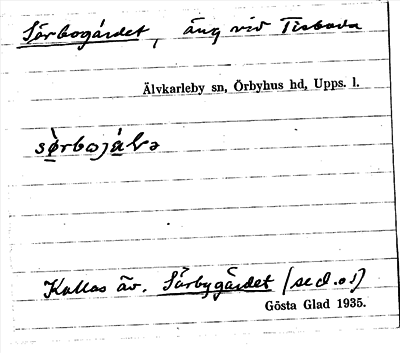 Sörbogärdet, äng vid Tisboda
Älvkarleby sn, Örbyhus hd, Upps. l.
Kallas äv. Sörbygärdet (se d. o!)
Gösta Glad 1935.